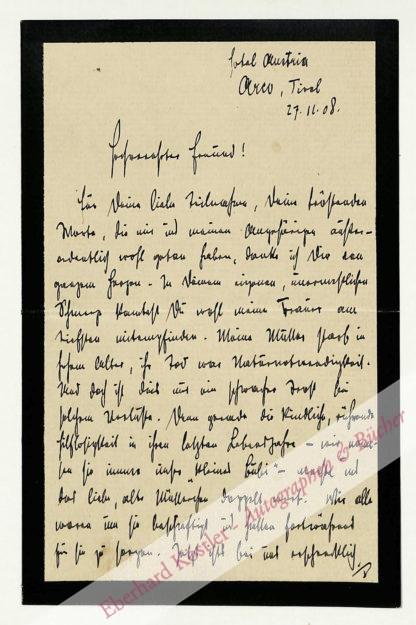 Hotel Austria
Arco, Tirol
27.11.08.
Hochverehrter Freund!
Für Deine liebe Teilnahme, Deine tröstenden
Worte, die mir und meinen Angehörigen außer-
ordentlich wohl getan haben, danke ich Dir von
ganzem Herzen. In Deinem eigenen, unermeßlichen
Schmerz konntest Du wohl meine Trauer am
tiefsten mitempfinden. Meine Mutter starb in
hohem Alter, ihr Tod war Naturnotwendigkeit.
Und doch ist dies nur ein schwacher Trost bei
solchem Verluste. Denn gerade die kindliche, rührende
Hilflosigkeit in ihren letzten Lebensjahren - wir nann-
ten sie immer unser "kleines Bubi" - machte uns
das liebe, alte Mütterchen doppelt wert. Wir alle
waren um sie beschäftigt und hatten fortwährend
für sie zu sorgen. Jetzt ists bei uns erschrecklich
Eberhard Köstler - Autographen & Bücher